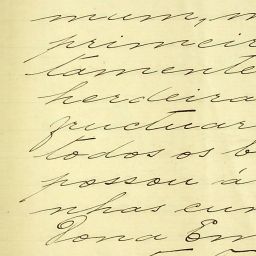 mum, m
primeir
tamente
herdeira
fructuar
todos os b
passou á
nhas cun
Dona Em